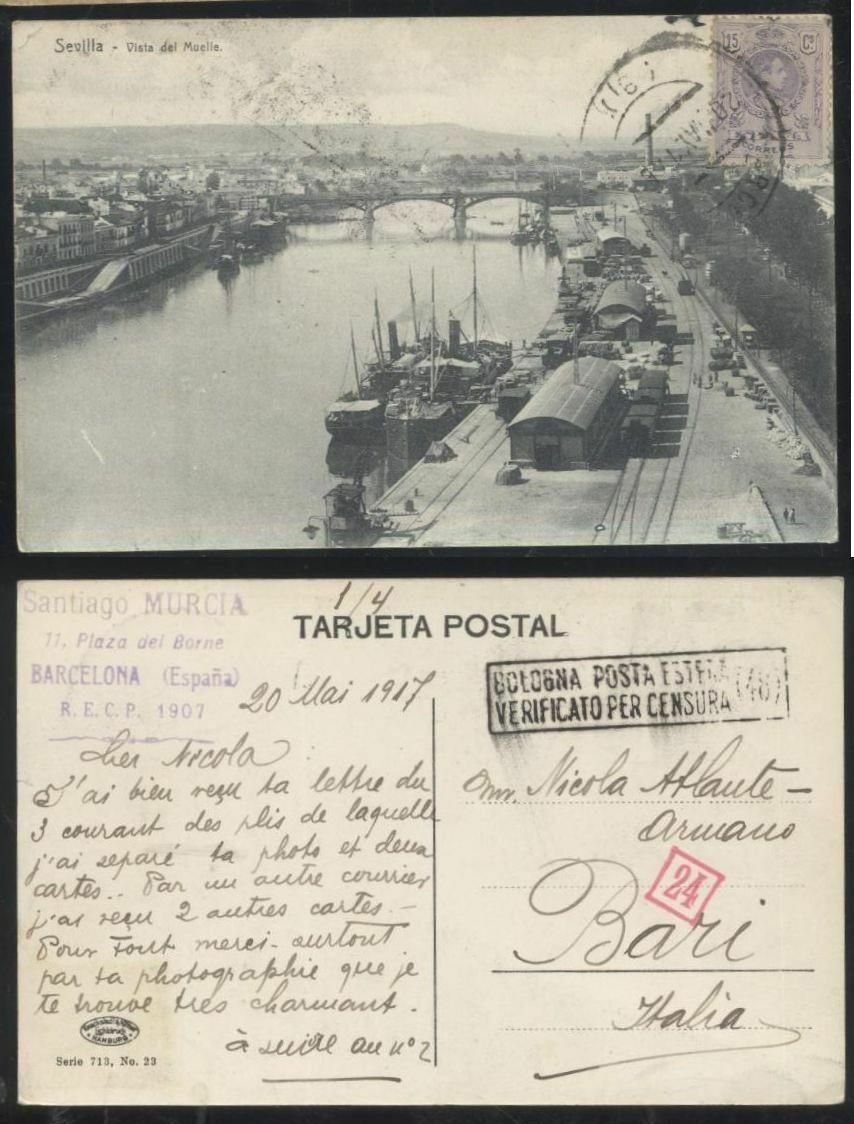 Sevilla - Vista del Muelle.
15 Cs
CORREOS
Santiago MURCIA
11, Plaza del Borne
BARCELONA (España)
R.E.C.P. 1907
1/4
TARJETA POSTAL
20 Mai 1917
BOLOGNA POSTA ESTERA
VERIFICATO PER CENSURA (46)
Cher Nicola
J'ai bien reçu ta lettre du
3 courant des plis de laquelle
j'ai separé ta photo et deux
cartes.. Par un autre courrier
j'ai reçu 2 autres cartes.-
Pour tout merci surtout
par ta photographie que je
te trouve tres charmant.
à suite au nº 2
Nicola Atlante-
Armano
24
Bari
Italia
HAMBURG
Serie 713, No. 23